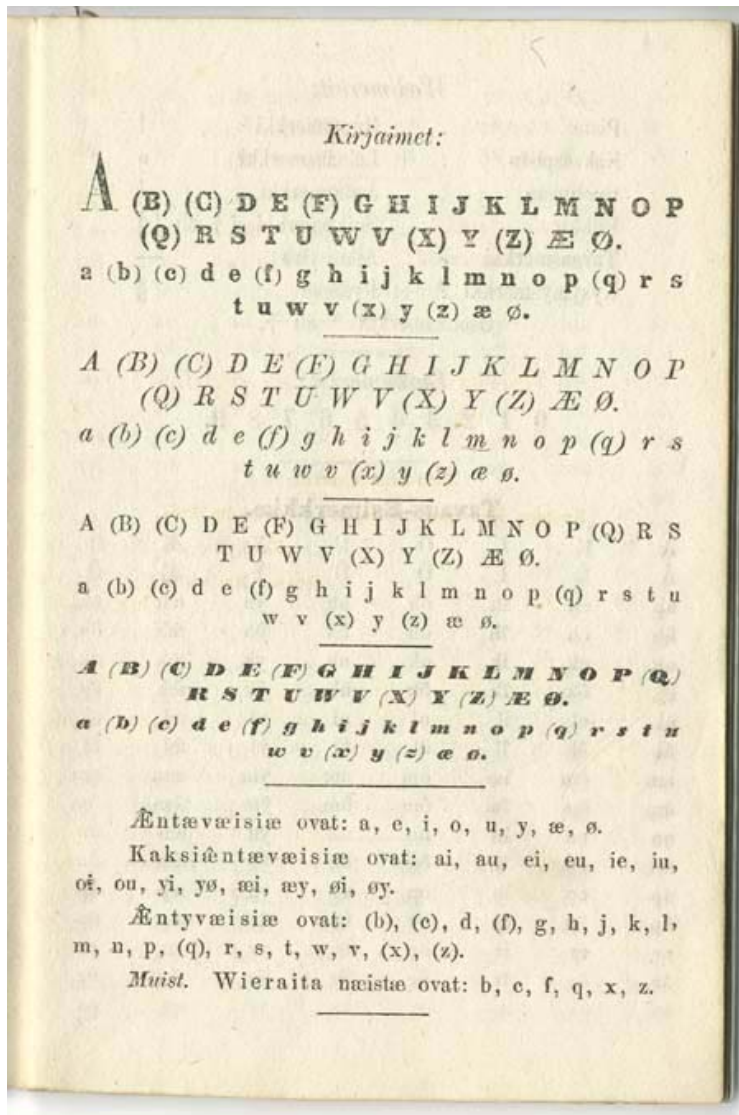 Kirjaimet:
A (B) (C) D E (F) G H I J K L M N O P
(Q) R S T U W V (X) Y (Z) Æ Ø.
a (b) (c) d e (f) g h i j k l m n o p (q) r s
t u w v (x) y (z) æ ø.
A (B) (C) D E (F) G H I J K L M N O P
(Q) R S T U W V (X) Y (Z) Æ Ø.
a (b) (c) d e (f) g h i j k l m n o p (q) r s
t u w v (x) y (z) æ ø.
A (B) (C) D E (F) G H I J K L M N O P (Q) R S
T U W V (X) Y (Z) Æ Ø.
a (b) (c) d e (f) g h i j k l m n o p (q) r s t u
w v (x) y (z) æ ø.
A (B) (C) D E (F) G H I J K L M N O P (Q)
R S T U W V (X) Y (Z) Æ Ø.
a (b) (c) d e (f) g h i j k l m n o p (q) r s t u
w v (x) y (z) æ ø.
Æntævæisiæ ovat: a, e, i, o, u, y, æ, ø.
Kaksiæ̂ntævæisiæ ovat: ai, au, ei, eu, ie, iu,
oi, ou, yi, yø, æi, æy, øi, øy.
Æ̂ntyvæisiæ ovat: (b), (c), d, (f), g, h, j, k, l,
m, n, p, (q), r, s, t, w, v, (x), (z).
Muist. Wieraita næistæ ovat: b, c, f, q, x, z.